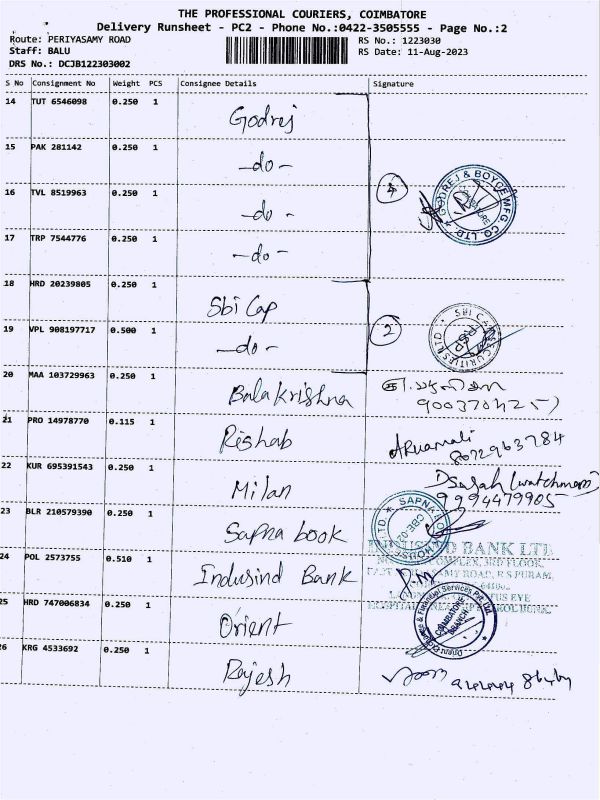 THE PROFESSIONAL COURIERS, COIMBATORE
Delivery Runsheet - PC2 - Phone No.:0422-3505555 - Page No.:2
Route: PERIYASAMY ROAD RS No.: 1223030
Staff: BALU RS Date: 11-Aug-2023
DRS No.: DCJB122303002
S No Consignment No Weight PCS Consignee Details Signature
14 TUT 6546098 0.250 1 Godrej
15 PAK 281142 0.250 1 -do-
4 GODREJ & BOYCE MFG. CO. LTD.
16 TVL 8519963 0.250 1 -do-
17 TRP 7544776 0.250 1 -do-
18 HRD 20239805 0.250 1 Sbi Cap
2 SBI CAP SECURITIES LTD
19 VPL 908197717 0.500 1 -do-
20 MAA 103729963 0.250 1 Balakrishna
21 PRO 14978770 0.115 1 Rishab
8072963784
22 KUR 695391543 0.250 1 Milan (watchman)
9994479905
23 BLR 210579390 0.250 1 Sapna book SAPNA BOOK HOUSE
INDUSIND BANK LTD
COMPLEX, 3RD FLOOR,
24 POL 2573755 0.510 1 Indusind Bank
ROAD, R S PURAM,
25 HRD 747006834 0.250 1 Orient Financial Services Pvt. Ltd.
COIMBATORE BRANCH
26 KRG 4533692 0.250 1 Rajesh